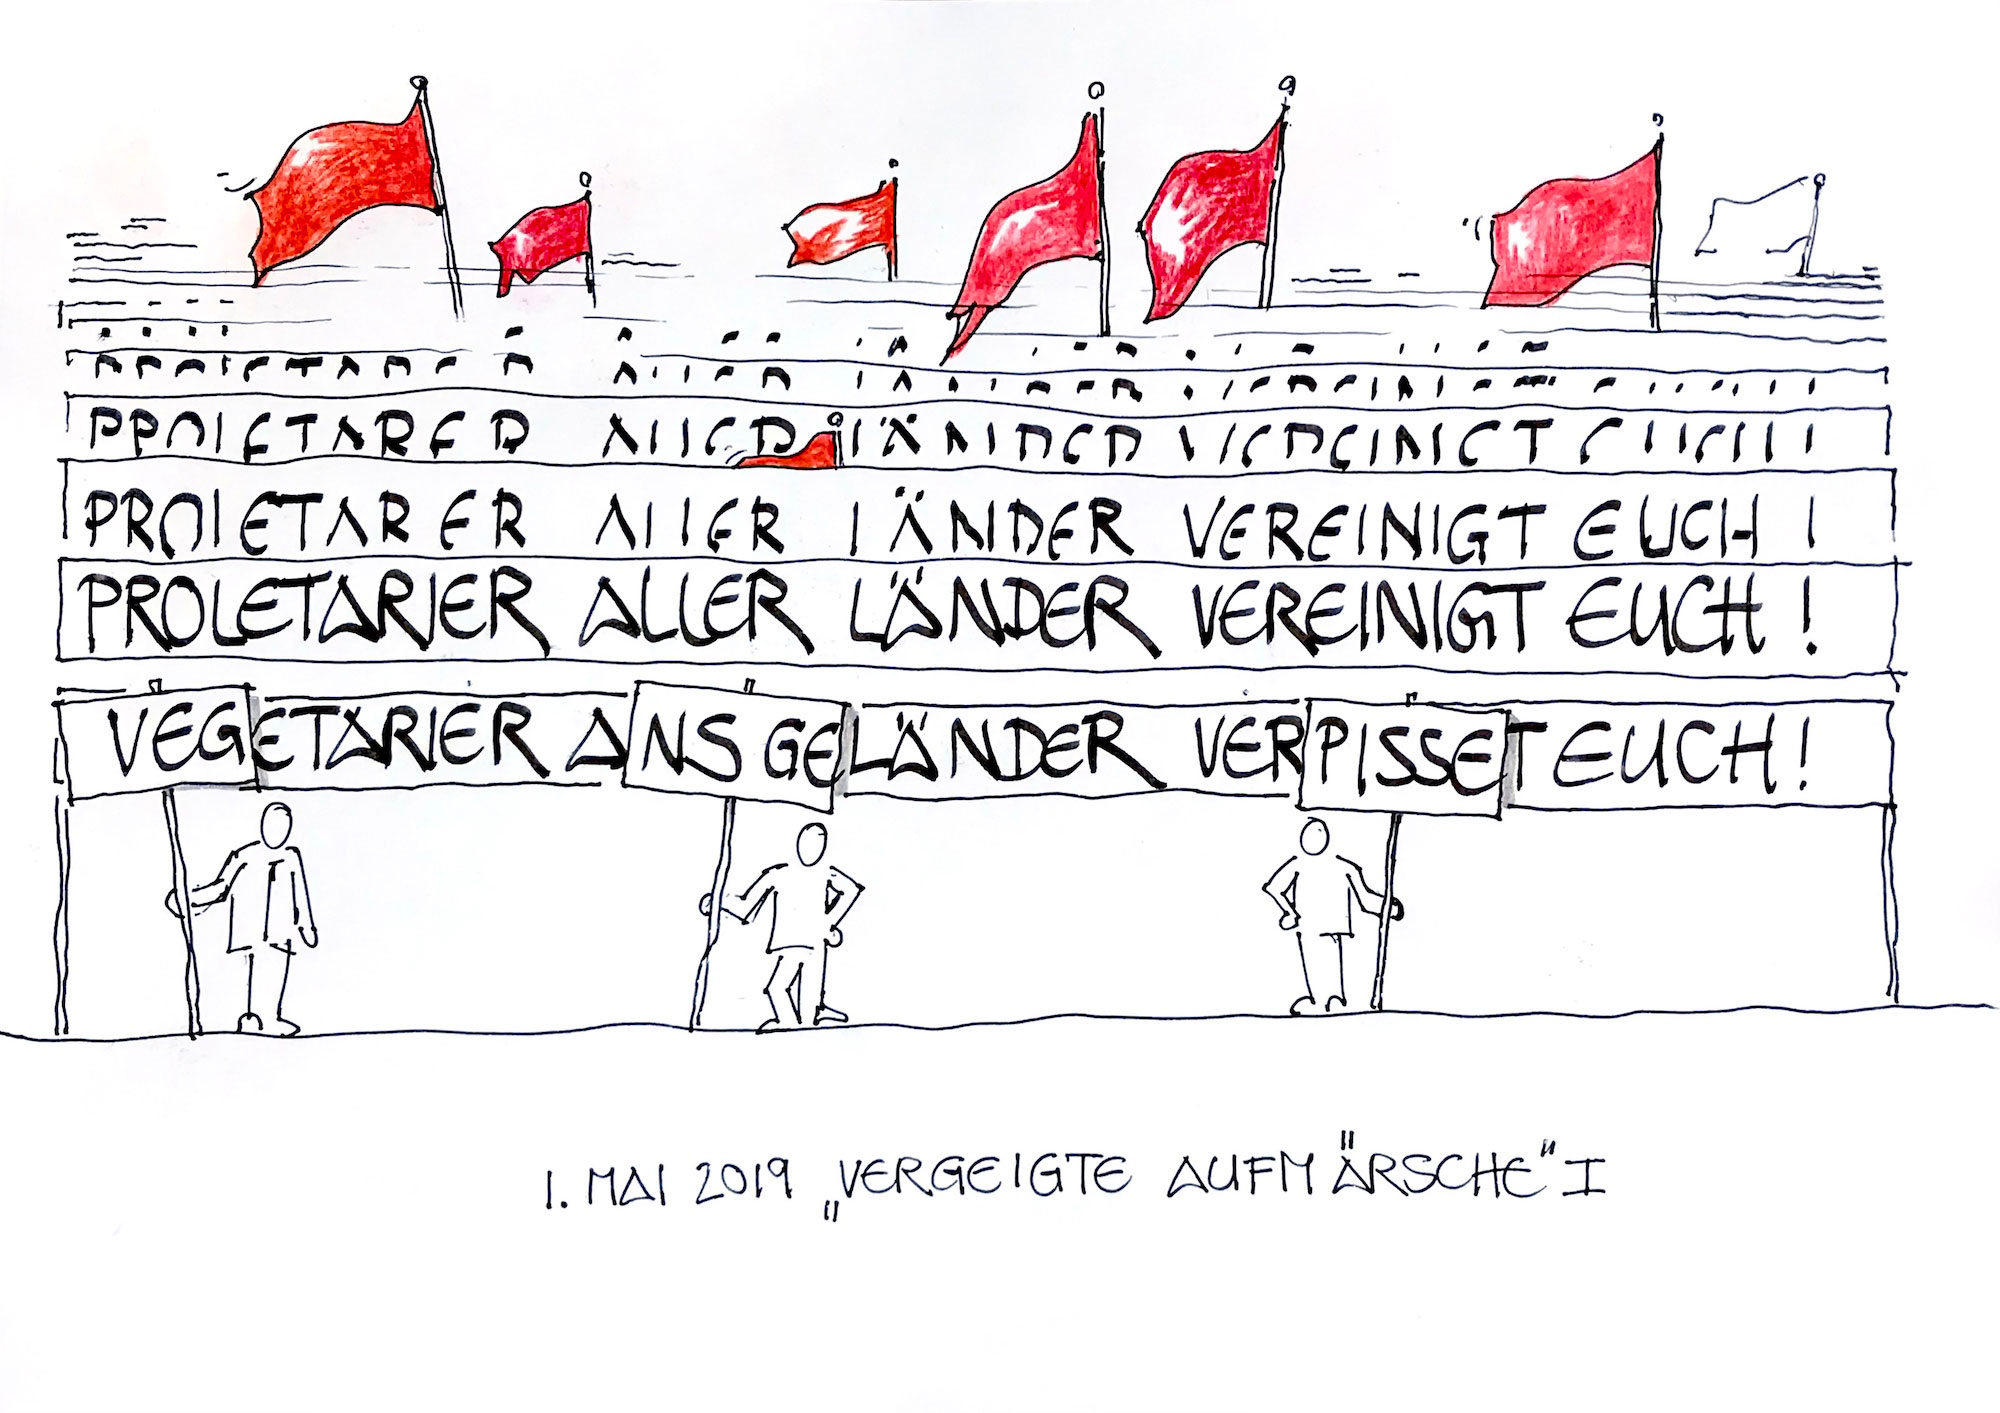 PROLETARIER ALLER LÄNDER VEREINIGT EUCH !
PROLETARIER ALLER LÄNDER VEREINIGT EUCH !
PROLETARIER ALLER LÄNDER VEREINIGT EUCH !
VEGETARIER ANS GELÄNDER VERPISSET EUCH !
1. MAI 2019 „VERGEIGTE AUFMÄRSCHE" I